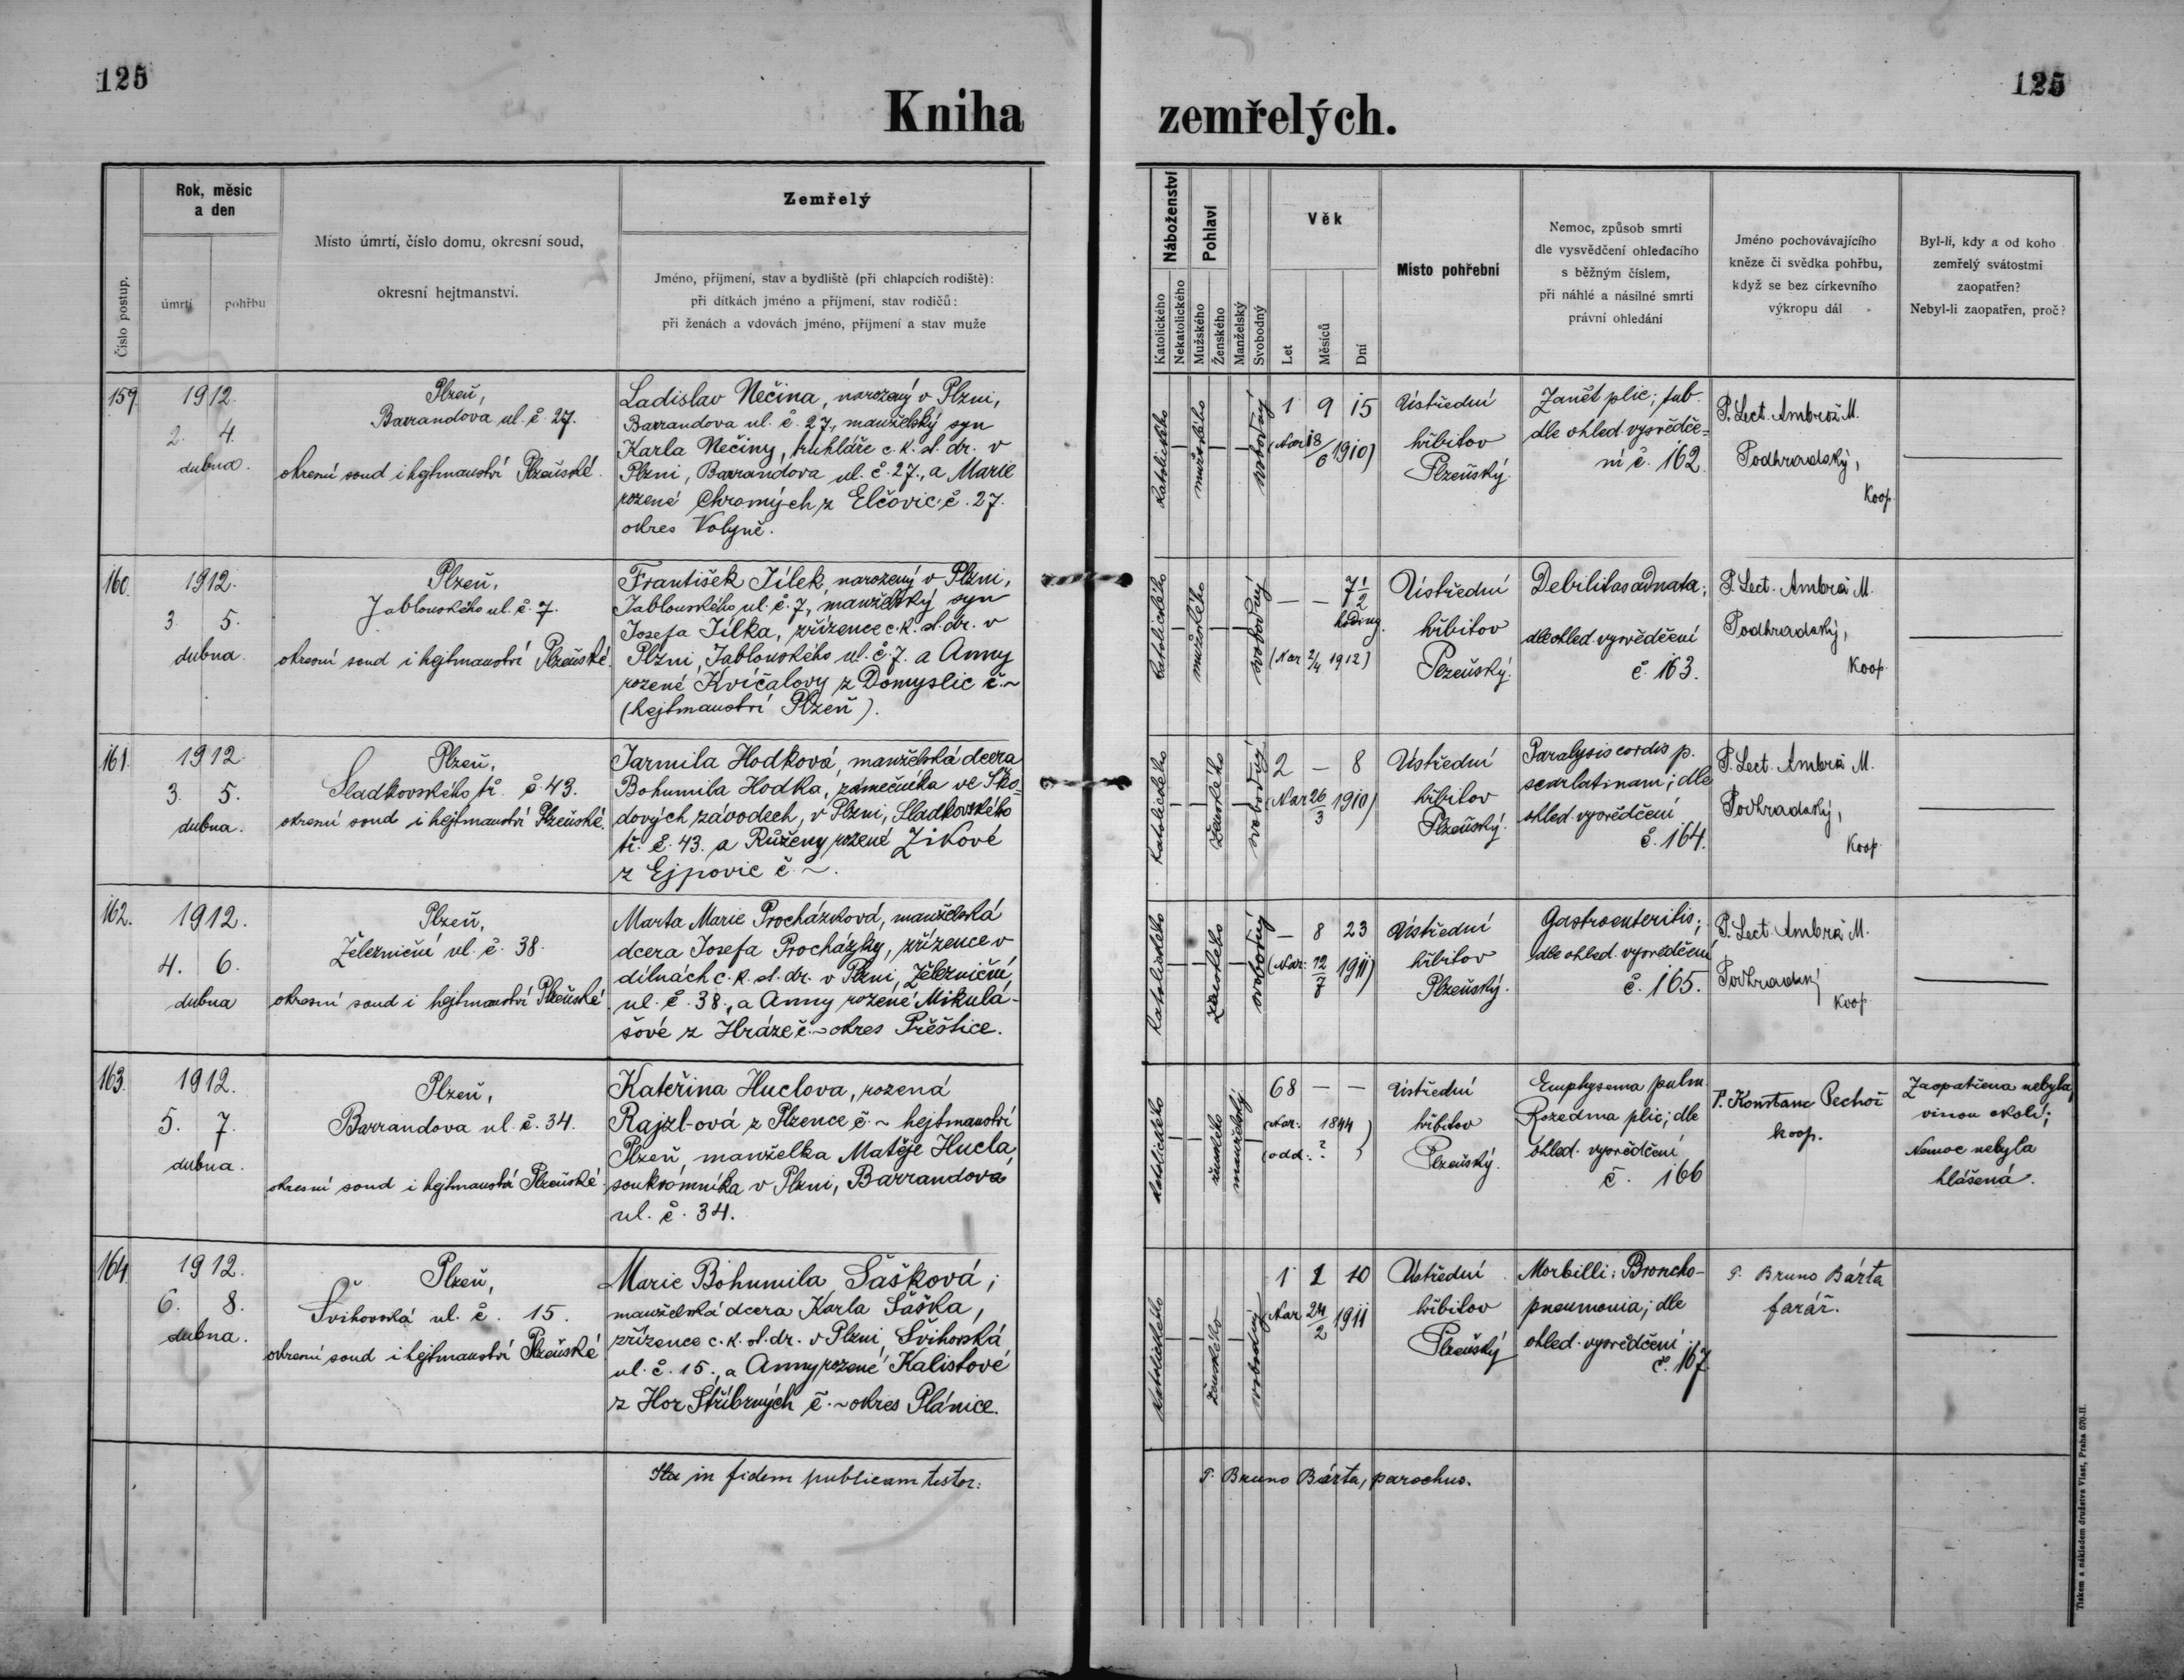 125
125
Kniha zemřelých.
Číslo postup.
Rok, měsíc
a den
úmrtí
pohřbu
Místo úmrtí, číslo domu, okresní soud,
okresní hejtmanství.
Zemřelý
Jméno, příjmení, stav a bydliště (při chlapcích rodiště):
při dítkách jméno a příjmení, stav rodičů:
při ženách a vdovách jméno, příjmení a stav muže
Náboženství
Katolického
Nekatolického
Pohlaví
Mužského
Ženského
Manželský
Svobodný
Věk
Let
Měsíců
Dní
Místo pohřební
Nemoc, způsob smrti
dle vysvědčení ohledacího
s běžným číslem,
při náhlé a násilné smrti
právní ohledání
Jméno pochovávajícího
kněze či svědka pohřbu,
když se bez církevního
výkropu dál
Byl-li, kdy a od koho
zemřelý svátostmi
zaopatřen?
Nebyl-li zaopatřen, proč?
159
1912.
2. 4.
dubna.
Plzeň,
Barrandova ul. č. 27.
okresní soud i hejtmanství Plzeňské.
Ladislav Nečina, narozený v Plzni,
Barrandova ul. č. 27, manželský syn
Karla Nečiny, truhláře c. k. st. dr. v
Plzni, Barrandova ul. č. 27., a Marie
rozené Chromých z Elčovic č. 27.
okres Volyně.
katolického
mužského
svobodný
1 9 15
(Nar. 18/6 1910)
Ústřední
hřbitov
Plzeňský.
Zanět plic; tub.
dle ohled. vysvědče=
ní č. 162.
P. Lect. Ambrož M.
Podhradský,
koop.
160.
1912.
3. 5.
dubna.
Plzeň,
Jablonského ul. č. 7.
okresní soud i hejtmanství Plzeňské.
František Jílek, narozený v Plzni,
Jablonského ul. č. 7, manželský syn
Josefa Jílka, zřízence c. k. st. dr. v
Plzni, Jablonského ul. č. 7. a Anny
rozené Kvíčalovy z Domyslic č. ~
(hejtmanství Plzeň).
katolického
mužského
svobodný
— — 7 1/2
hodiny.
(Nar. 2/4 1912)
Ústřední
hřbitov
Plzeňský.
Debilitas adnata;
dle ohled. vysvědčení
č. 163.
P. Lect. Ambrož M.
Podhradský,
koop.
161.
1912.
3. 5.
dubna.
Plzeň,
Sladkovského tř. č. 43.
okresní soud i hejtmanství Plzeňské.
Jarmila Hodková, manželská dcera
Bohumila Hodka, zámečníka ve Ško=
dových závodech, v Plzni, Sladkovského
tř. č. 43. a Růženy rozené Zikové
z Ejpovic č. ~.
katolického
ženského
svobodný
2 — 8
(Nar. 26/3 1910)
Ústřední
hřbitov
Plzeňský.
Paralysis cordis p.
scarlatinam; dle
ohled. vysvědčení
č. 164.
P. Lect. Ambrož M.
Podhradský,
koop.
162.
1912.
4. 6.
dubna
Plzeň,
Železniční ul. č. 38.
okresní soud i hejtmanství Plzeňské
Marta Marie Procházková, manželská
dcera Josefa Procházky, zřízence v
dílnách c. k. st. dr. v Plzni, Železniční
ul. č. 38., a Anny rozené Mikulá-
šové z Hráze č. ~ okres Přeštice.
katolického
ženského
svobodný
— 8 23
(Nar. 12/7 1911)
Ústřední
hřbitov
Plzeňský.
Gastroenteritis;
dle ohled. vysvědčení
č. 165.
P. Lect. Ambrož M.
Podhradský
koop.
163.
1912.
5. 7.
dubna.
Plzeň,
Barrandova ul. č. 34.
okresní soud i hejtmanství Plzeňské.
Kateřina Huclova, rozená
Rajzl-ová z Plzence č. ~ hejtmanství
Plzeň, manželka Matěje Hucla,
soukromníka v Plzni, Barrandova
ul. č. 34.
katolického
ženského
manželský
68 — —
(Nar. 1844)
(odd.: ? )
Ústřední
hřbitov
Plzeňský.
Emphysema pulm.
Rozedma plic; dle
ohled. vysvědčení
č. 166
P. Konstanc Pechoč
koop.
Zaopatřena nebyla
vinou okolí;
Nemoc nebyla
hlášená.
164.
1912.
6. 8.
dubna.
Plzeň,
Švihovská ul. č. 15.
okresní soud i hejtmanství Plzeňské
Marie Bohumila Šašková;
manželská dcera Karla Šaška,
zřízence c. k. st. dr. v Plzni, Švihovská
ul. č. 15., a Anny rozené Kalistové
z Hor Stříbrných č. ~ okres Plánice.
katolického
ženského
svobodný
1 1 10
Nar. 24/2 1911
Ústřední
hřbitov
Plzeňský
Morbilli; Broncho-
pneumonia; dle
ohled. vysvědčení
č. 167.
P. Bruno Bárta
farář.
Ita in fidem publicam testor:
P. Bruno Bárta, parochus.
Tiskem a nákladem družstva Vlast, Praha 570-II.